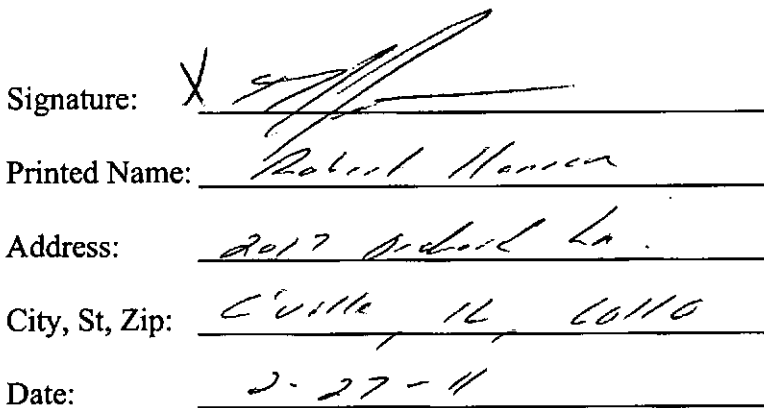 Signature: X
Printed Name: Robert Hansen
Address: 2017 Orchard Ln.
City, St, Zip: C'ville, IL, 60110
Date: 2-27-11